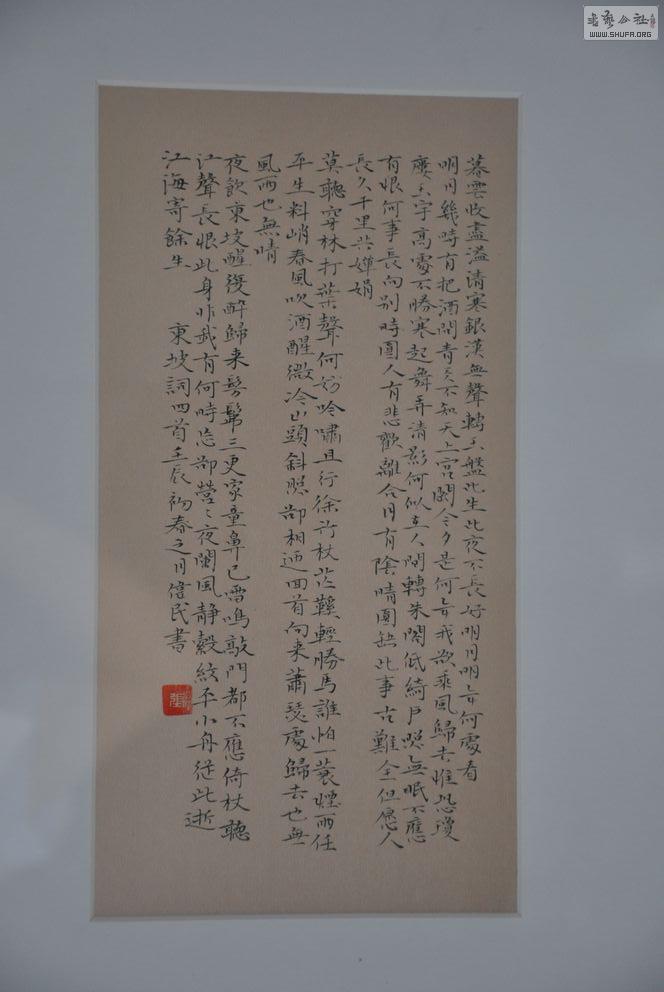 暮雲收盡溢清寒銀漢無聲轉玉盤此生此夜不長好明月明年何處看
明月幾時有把酒問青天不知天上宮闕今夕是何年我欲乘風歸去惟恐瓊
廔玉宇高處不勝寒起舞弄清影何似在人間轉朱閣低綺户照無眠不應
有恨何事長向別時圓人有悲歡離合月有陰晴圓缺此事古難全但愿人
長久千里共嬋娟
莫聽穿林打葉聲何妨吟嘯且行徐竹杖芒鞵輕勝馬誰怕一蓑煙雨任
平生料峭春風吹酒醒微冷山頭斜照却相迎回首向来蕭瑟處歸去也無
風雨也無晴
夜飲東坡醒復醉歸来髣髴三更家童鼻已雷鳴敲門都不應倚杖聽
江聲長恨此身非我有何時忘却營〻夜闌風静縠紋平小舟從此逝
江海寄餘生 東坡詞四首壬辰初春之月偉民書
書藝公社
WWW.SHUFA.ORG